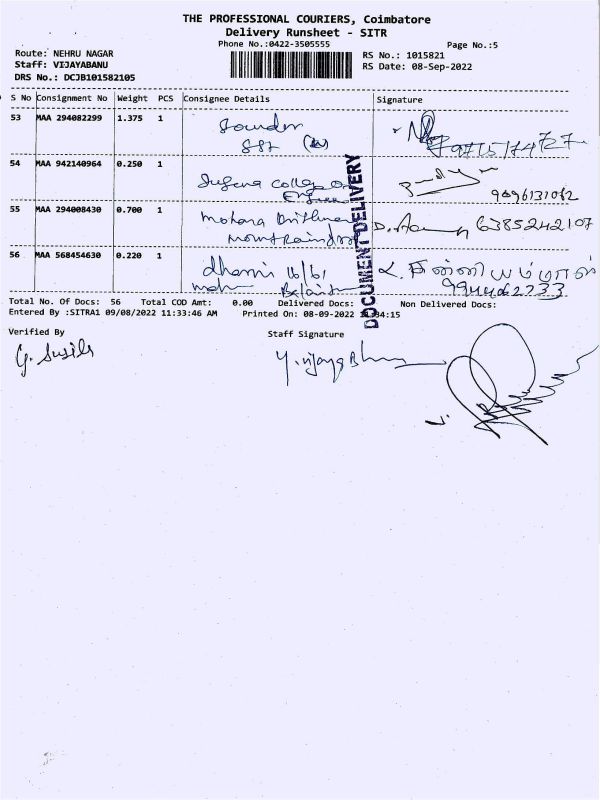 THE PROFESSIONAL COURIERS, Coimbatore
Delivery Runsheet - SITR
Phone No.:0422-3505555
Page No.:5
Route: NEHRU NAGAR
Staff: VIJAYABANU
DRS No.: DCJB101582105
RS No.: 1015821
RS Date: 08-Sep-2022
S No Consignment No Weight PCS Consignee Details Signature
53 MAA 294082299 1.375 1
54 MAA 942140964 0.250 1 Suguna College of
9096131062
55 MAA 294008430 0.700 1 D. 6385242107
56 MAA 568454630 0.220 1 dharani 16/61
9944062733
DOCUMENT DELIVERY
Total No. Of Docs: 56 Total COD Amt: 0.00 Delivered Docs: Non Delivered Docs:
Entered By :SITRA1 09/08/2022 11:33:46 AM Printed On: 08-09-2022 :34:15
Verified By
Staff Signature
G. Susila
Y. vijaya Bhanu